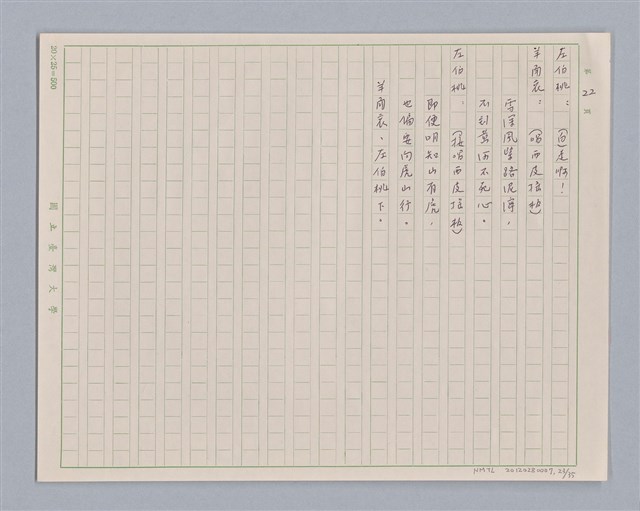 第 22 頁
左伯桃：（白）走呀！
羊角哀：（唱西皮搖板）
雪深風緊路泥濘，
不到黃河不死心。
左伯桃：（接唱西皮搖板）
即使明知山有虎，
也偏要向虎山行。
羊角哀、左伯桃下。
20×25=500
國立臺灣大學
NMTL 20120280007, 23/35